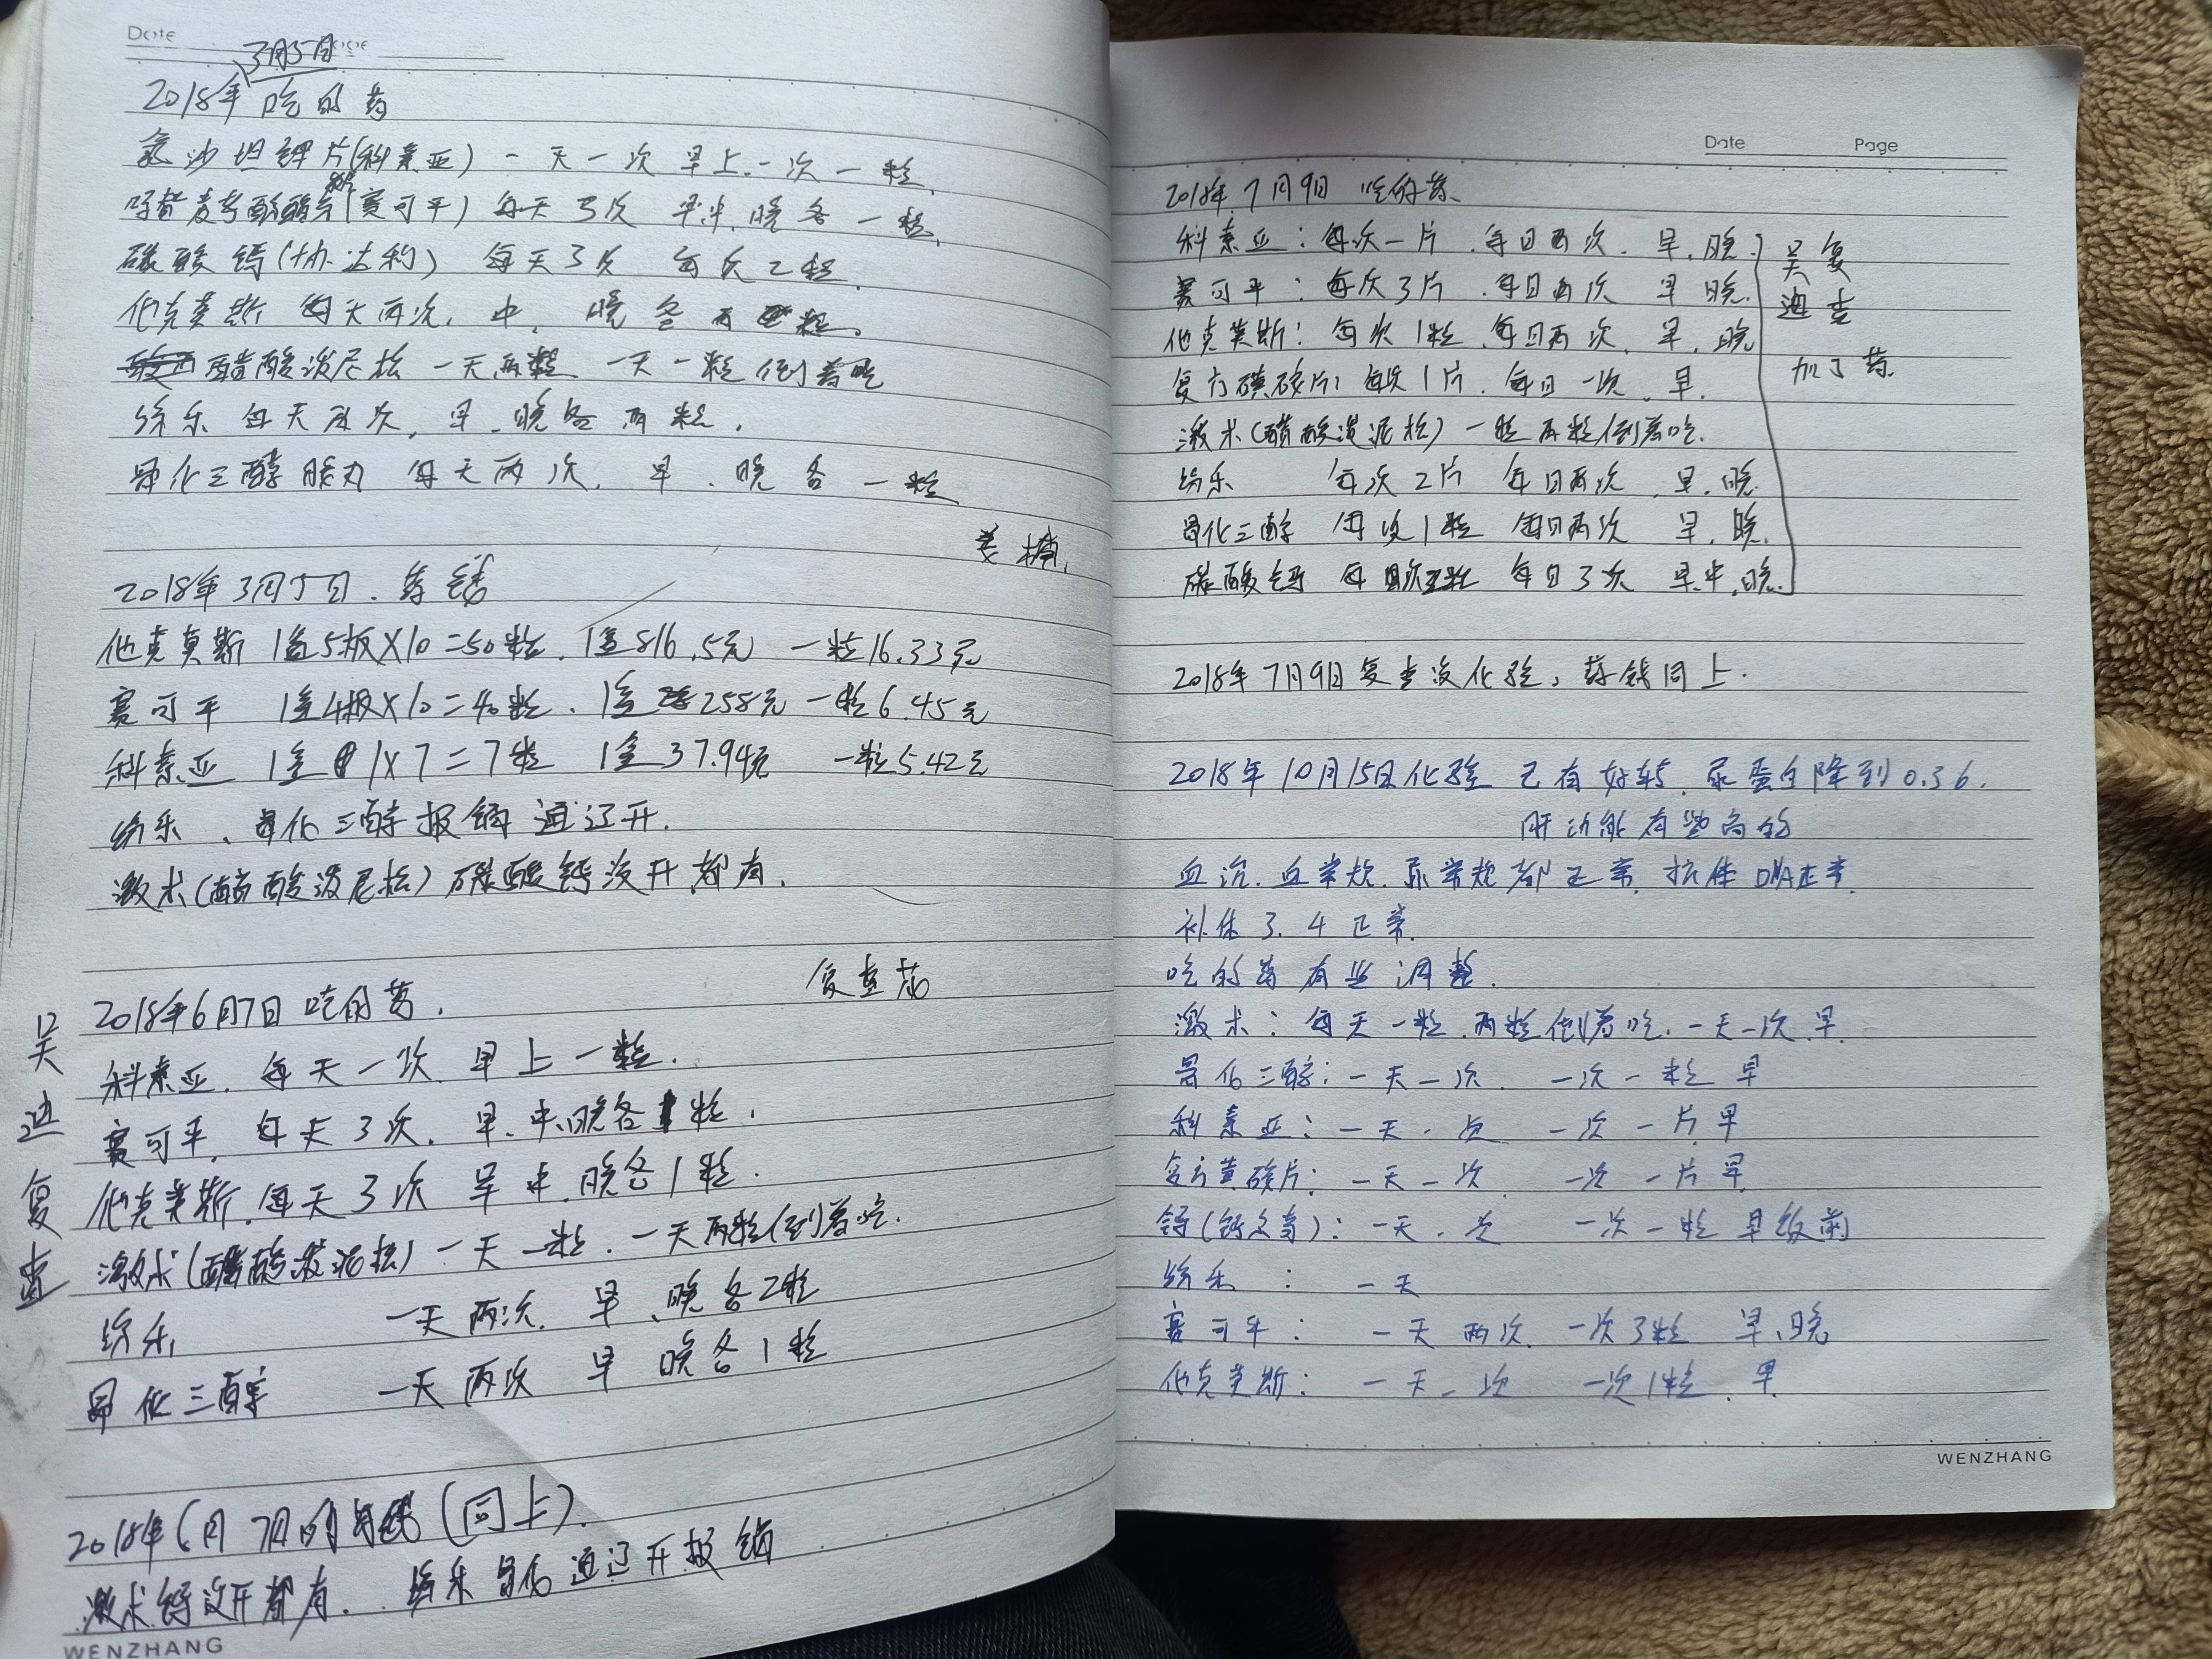 Date
3月5日
2018年 吃的药
氯沙坦钾片(科素亚) 一天一次 早上.一次一粒.
吗替麦考酚酯(赛可平) 每天3次 早中.晚各一粒.
碳酸钙(协达利) 每天3次 每次2粒.
他克莫斯 每天两次. 中. 晚各两粒.
醋酸泼尼松 一天两粒 一天一粒倒着吃
纷乐 每天两次, 早.晚各两粒.
骨化三醇胶丸 每天两次. 早.晚各一粒
2018年3月5日. 药钱
他克莫斯 1盒5板X10=50粒. 1盒816.5元 一粒16.33元
赛可平 1盒4板X10=40粒. 1盒258元 一粒6.45元
科素亚 1盒1X7=7粒 1盒37.94元 一粒5.42元
纷乐、骨化三醇报销通辽开.
激术(醋酸泼尼松) 碳酸钙没开,都有.
2018年6月7日 吃的药.
吴迪复查
科素亚. 每天一次. 早上一粒.
赛可平. 每天3次. 早.中.晚各1粒.
他克莫斯. 每天3次 早中.晚各1粒.
激术(醋酸泼泥松) 一天一粒. 一天两粒倒着吃.
纷乐 一天两次. 早、晚各2粒
骨化三醇 一天两次 早 晚各1粒
2018年6月7日的药钱(同上).
激术钙没开都有. 纷乐骨化通辽开报销
WENZHANG
Date Page
2018年7月9日 吃的药.
科素亚:每次一片.每日两次.早.晚.
赛可平:每次3片.每日两次 早 晚.
他克莫斯:每次1粒.每日两次.早.晚
复方磺砍片:每次1片.每日一次.早.
激术(醋酸泼泥松) 一粒两粒倒着吃.
纷乐 每次2片 每日两次.早.晚
骨化三醇 每次1粒 每日两次 早.晚.
碳酸钙 每次2粒 每日3次 早.中.晚.
吴迪
复查
加了药.
2018年7月9日复查没化验,药钱同上.
2018年10月15日化验 已有好转.尿蛋白降到0.36.
肝功能有些高的
血沉.血常规.尿常规都正常.抗体DNA正常.
补体3.4正常.
吃的药有些调整.
激术:每天一粒.两粒倒着吃.一天一次.早.
骨化三醇:一天一次. 一次一粒 早
科素亚:一天一次 一次一片.早
复方黄砍片:一天一次. 一次一片早.
钙(钙尔奇):一天一次 一次一粒 早饭前
纷乐 : 一天
赛可平: 一天两次. 一次3粒 早、晚
他克莫斯: 一天一次 一次1粒.早.
WENZHANG